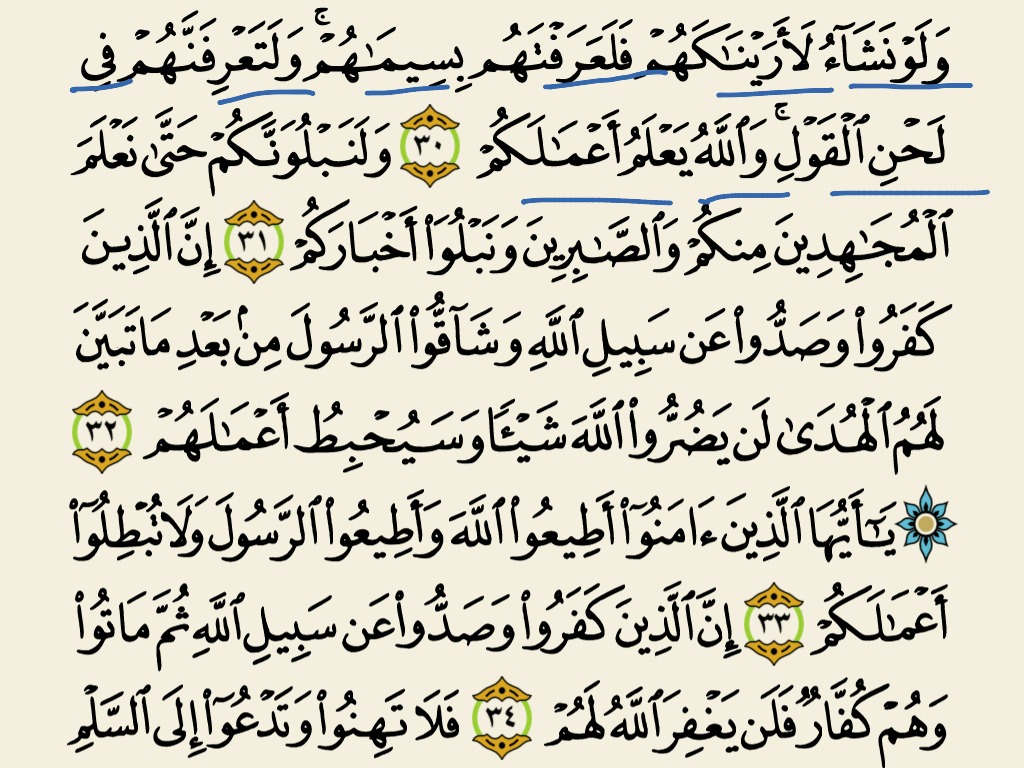 وَلَوْ نَشَآءُ لَأَرَيْنَـٰكَهُمْ فَلَعَرَفْتَهُم بِسِيمَـٰهُمْ ۚ وَلَتَعْرِفَنَّهُمْ فِى
لَحْنِ ٱلْقَوْلِ ۚ وَٱللَّهُ يَعْلَمُ أَعْمَـٰلَكُمْ ٣٠ وَلَنَبْلُوَنَّكُمْ حَتَّىٰ نَعْلَمَ
ٱلْمُجَـٰهِدِينَ مِنكُمْ وَٱلصَّـٰبِرِينَ وَنَبْلُوَا۟ أَخْبَارَكُمْ ٣١ إِنَّ ٱلَّذِينَ
كَفَرُوا۟ وَصَدُّوا۟ عَن سَبِيلِ ٱللَّهِ وَشَآقُّوا۟ ٱلرَّسُولَ مِنۢ بَعْدِ مَا تَبَيَّنَ
لَهُمُ ٱلْهُدَىٰ لَن يَضُرُّوا۟ ٱللَّهَ شَيْـًٔا وَسَيُحْبِطُ أَعْمَـٰلَهُمْ ٣٢
يَـٰٓأَيُّهَا ٱلَّذِينَ ءَامَنُوٓا۟ أَطِيعُوا۟ ٱللَّهَ وَأَطِيعُوا۟ ٱلرَّسُولَ وَلَا تُبْطِلُوٓا۟
أَعْمَـٰلَكُمْ ٣٣ إِنَّ ٱلَّذِينَ كَفَرُوا۟ وَصَدُّوا۟ عَن سَبِيلِ ٱللَّهِ ثُمَّ مَاتُوا۟
وَهُمْ كُفَّارٌ فَلَن يَغْفِرَ ٱللَّهُ لَهُمْ ٣٤ فَلَا تَهِنُوا۟ وَتَدْعُوٓا۟ إِلَى ٱلسَّلْمِ